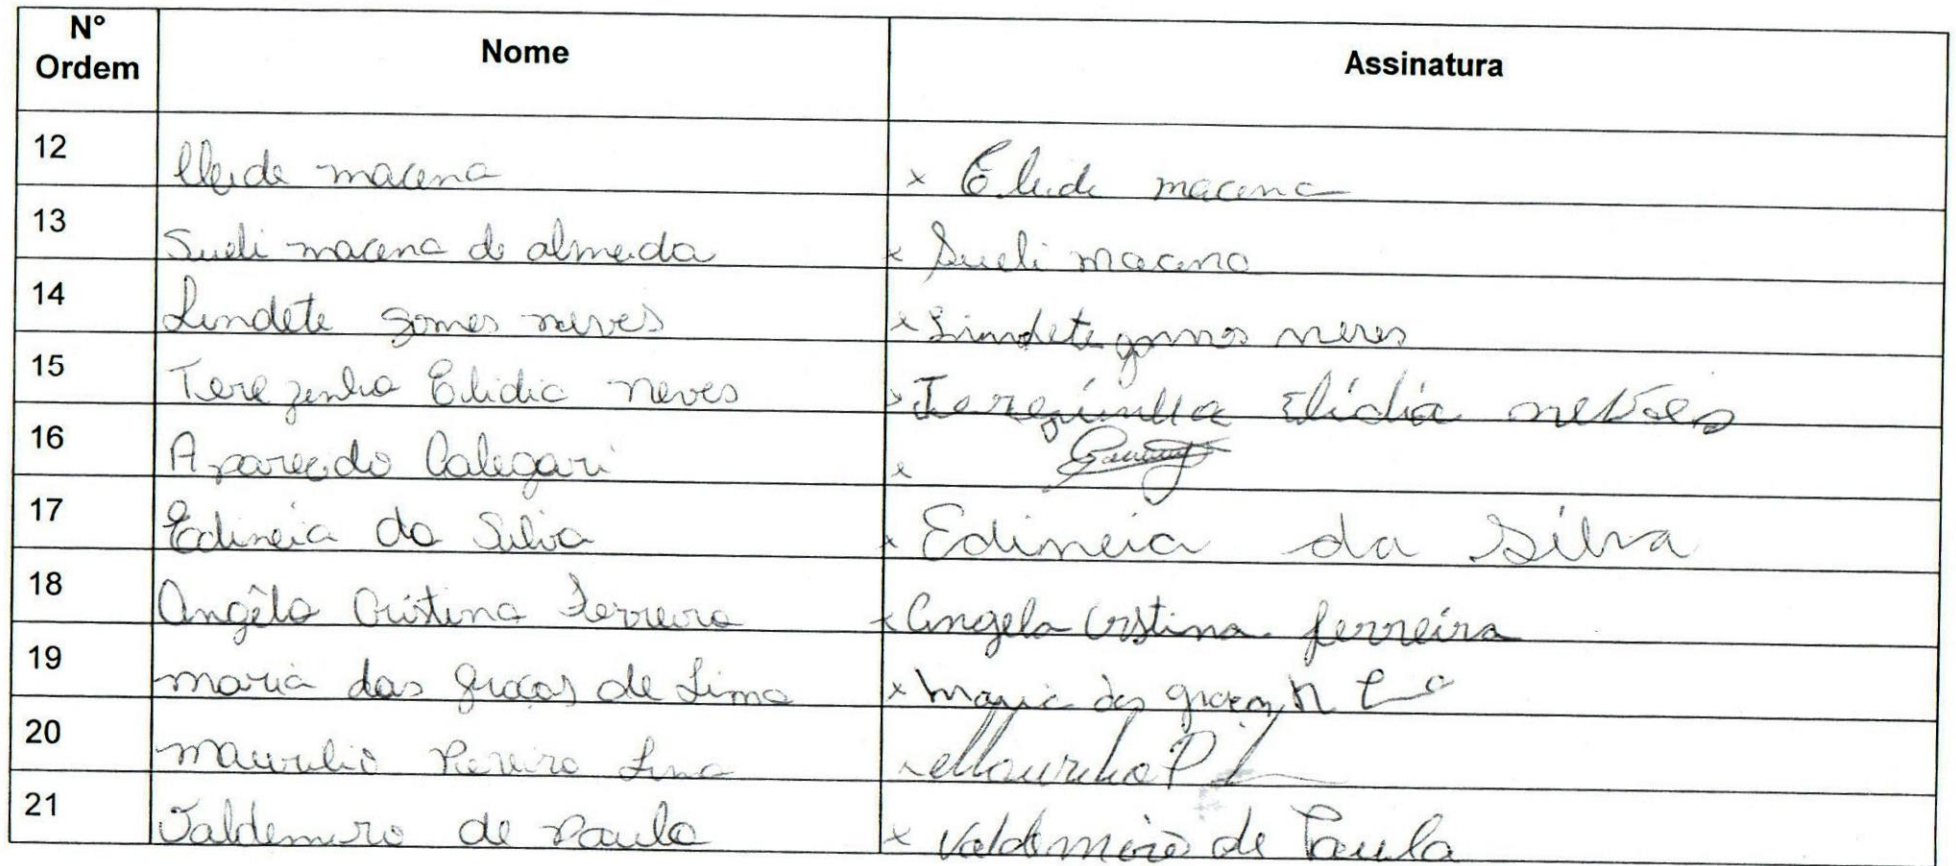 N° Ordem Nome Assinatura
12 Cleide macena x Cleide macena
13 Sueli macena de almeida x Sueli macena
14 Lindete gomes neves x Lindete gomes neves
15 Terezinha Elidia neves x Terezinha Elídia neves
16 Aparecido Calegari x
17 Edineia da Silva x Edineia da Silva
18 Angêla Cristina Ferreira x Angela Cristina ferreira
19 maria das graças de Lima x Maria das graças
20 maurilio Pereira Lima x Maurilio P L
21 Valdemiro de Paula x Valdemiro de Paula